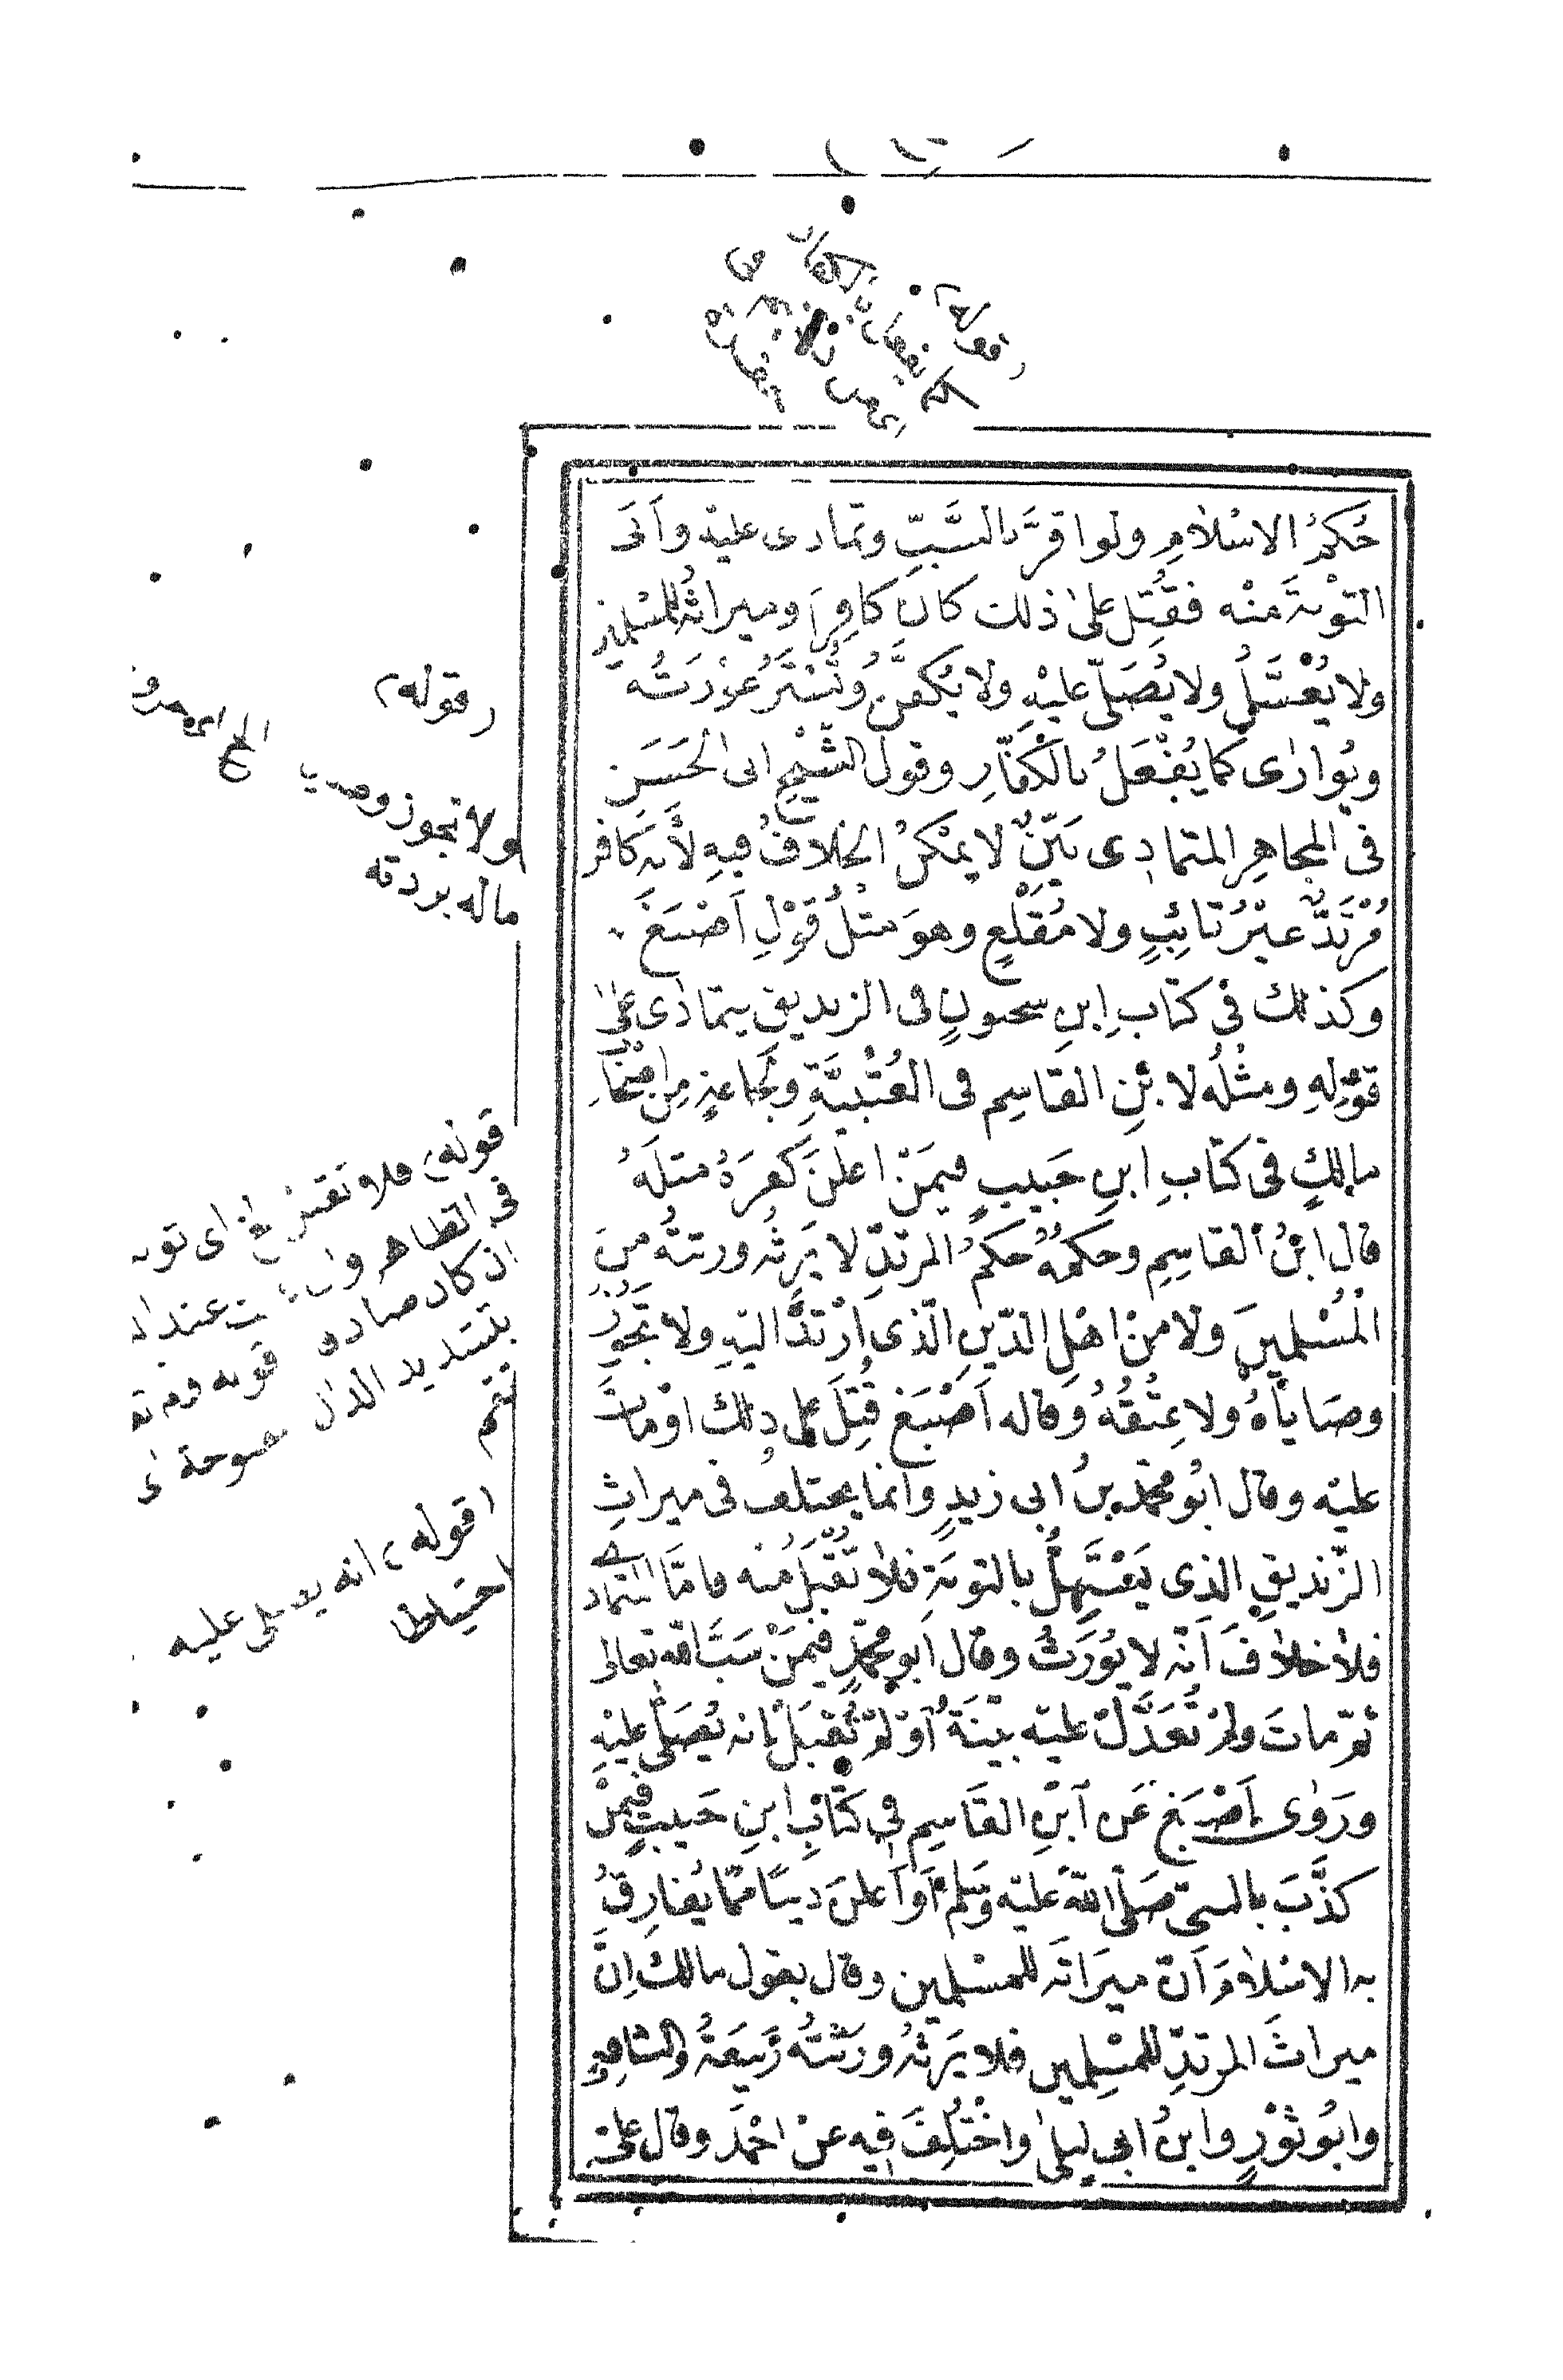 حُكمُ الاسْلامِ ولو اقرَّ بالسَّبِّ وتمادى عليْه وأبَى
التوْبةَ منْه فقُتِل علىٰ ذلك كان كافِراً وميراثُه للمسْلمين
ولا يُغْسَّلُ ولا يُصَلّى عليْهِ ولا يُكفَّن وتُسْتَرُ عوْرَتُه
ويُوارٰى كما يُفْعَلُ بالكفّارِ وقولُ الشّيْخِ ابى الحَسَنِ
فى المجاهِر المتمادِى بَيّنٌ لا يمْكنُ الخلافُ فيهِ لأنّه كافر
مُرْتَدٌّ غيْرُ تائِبٍ ولا مُقْلِعٍ وهوَ مثلُ قَوْلِ اَصْبَغَ
وكذلك فى كتابِ ابنِ سحنونٍ فى الزنديقِ يتمادٰى علىٰ
قوْلِهِ ومثْلُه لابْنِ القاسِمِ فى العُتْبيَّةِ ولجماعةٍ مِن اصْحَابِ
مالِكٍ فى كتابِ ابنِ حَبيبٍ فيمَنْ اعْلنَ كفرَهُ مثلَهُ
قال ابْنُ القاسِمِ وحكمُهُ حكمُ المرتدِّ لا يَرِثُه ورثتُه منَ
المُسْلمينَ ولا منْ اهْلِ الدّينِ الّذى ارْتدَّ اليْهِ ولا تَجُوزُ
وصَاياهُ ولا عِتْقُهُ وقاله اَصْبَغ قُتِلَ على ذلك اوْ ماتَ
عليْه وقال ابُو محمّد بنُ ابى زيدٍ وانّما يختلفُ فى ميراثِ
الزّنديقِ الذى يَسْتَهِلُّ بالتوبَةِ فلا تُقْبَلُ منْه فامّا المتمادى
فلا خلافَ اَنّه لا يُورَثُ وقال ابو محمّدٍ فيمَنْ سَبَّ الله تعالى
ثم ماتَ ولمْ تُعَدَّلْ عليْه بيّنَةٌ اَوْ لمْ تُقْبَلْ إنه يُصَلّى عليْهِ
ورَوٰى اَصْبَغ عَن ابْنِ القَاسِمِ فى كتَابِ ابنِ حَبيبٍ فيمَنْ
كذَّبَ بالنبىّ صَلّى اللهُ عليْه وسَلم أوْ اَعلنَ دينًا ممّا يُفارِقُ
به الاسْلامَ اَنّ ميرَاثَه للمسْلمين وقال بقول مالك اِنَّ
ميراثَ المرتدِّ للمسْلِمين فلا يَرِثُهُ ورَثتُه رَبيعَةُ والشافِعِى
وابُو ثَوْرٍ وابنُ ابى ليلىٰ واخْتُلِفَ فيه عنْ احْمدَ وقال علىّ
(قوله
ولا تجوز
ماله بردته
قوله فلا تقبل الخ اى
فى الظاهر وان عند
ان كان صادق
بتشديد الدال
(قوله انه يصلى عليه
احتياطا